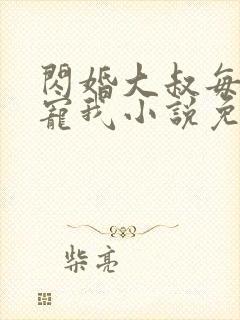 閃婚大叔每
寵我小說免
柴亮